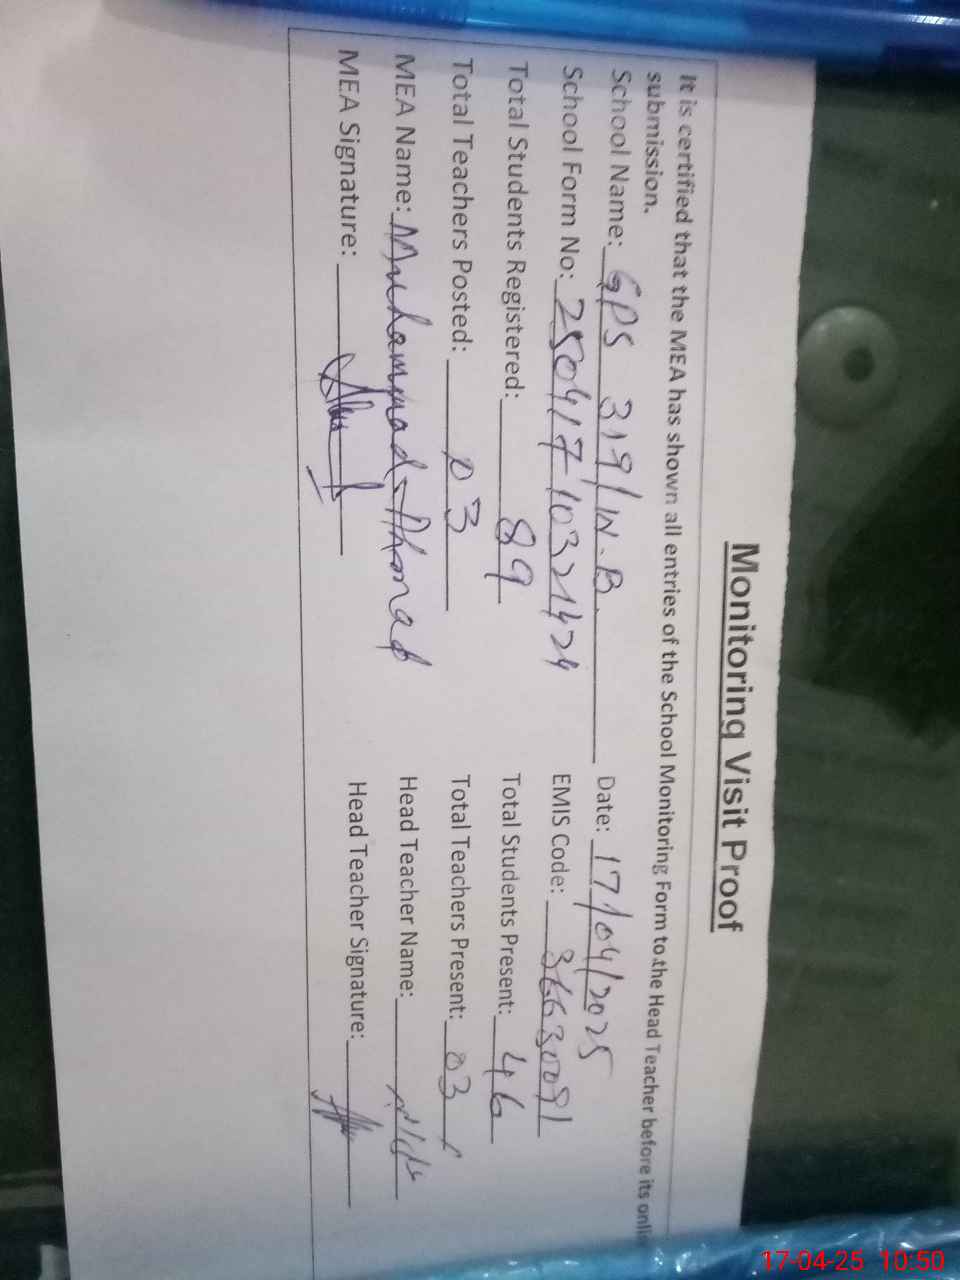 Monitoring Visit Proof
It is certified that the MEA has shown all entries of the School Monitoring Form to the Head Teacher before its onli
submission.
School Name: GPS 319/W.B. Date: 17/04/2025
School Form No: 25041710321424 EMIS Code: 36630091
Total Students Registered: 89 Total Students Present: 46
Total Teachers Posted: 03 Total Teachers Present: 03
MEA Name: Muhammad Ahmad Head Teacher Name:
MEA Signature: Head Teacher Signature:
17-04-25 10:50